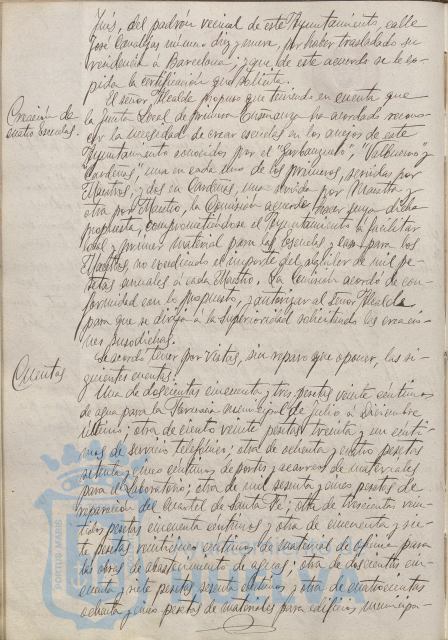 Luis, del padrón vecinal de este Ayuntamiento, calle
José Canalejas número diez y nueve, por haber trasladado su
residencia a Barcelona; y que de este acuerdo se le ex-
pida la certificación que solicita.
Creación de
cuatro escuelas.
El señor Alcalde propuso que teniendo en cuenta que
la Junta local de primera Enseñanza ha acordado recono-
cer la necesidad de crear escuelas en los anejos de este
Ayuntamiento conocidos por el "Garbanzuelo", "Valbueno" y
Cardeñas, una en cada uno de los primeros, servidas por
Maestros, y dos en Cardeñas, una servida por Maestra y
otra por Maestro, la Comisión acuerda hacer suya dicha
propuesta, comprometiéndose el Ayuntamiento a facilitar
local y primer material para las escuelas y casa para los
Maestros, no excediendo el importe del alquiler de mil pe-
setas anuales a cada Maestro. La Comisión acordó de con-
formidad con lo propuesto, y autorizar al Señor Alcalde
para que se dirija a la Superioridad solicitando las creacio-
nes susodichas.
Cuentas
Se acordó tener por vistas, sin reparo que oponer, las si-
guientes cuentas:
Una de doscientas cincuenta y tres pesetas veinte céntimos
de agua para la Farmacia municipal de Julio a Diciembre
último; otra de ciento veinte pesetas treinta y un cénti-
mos de servicio telefónico; otra de ochenta y cuatro pesetas
setenta y cinco céntimos de portes y acarreos de materiales
para el Laboratorio; otra de mil sesenta y cinco pesetas de
reparación del Cuartel de Santa Fé; otra de trescientas vein-
tidós pesetas cincuenta céntimos y otra de cincuenta y sie-
te pesetas veinticinco céntimos de material de oficina para
las obras de abastecimiento de aguas; otra de doscientas cin-
cuenta y siete pesetas sesenta céntimos y otra de cuatrocientas
ochenta y cinco pesetas de materiales para edificios municipa-
PORTUS MARIS
HUELVA